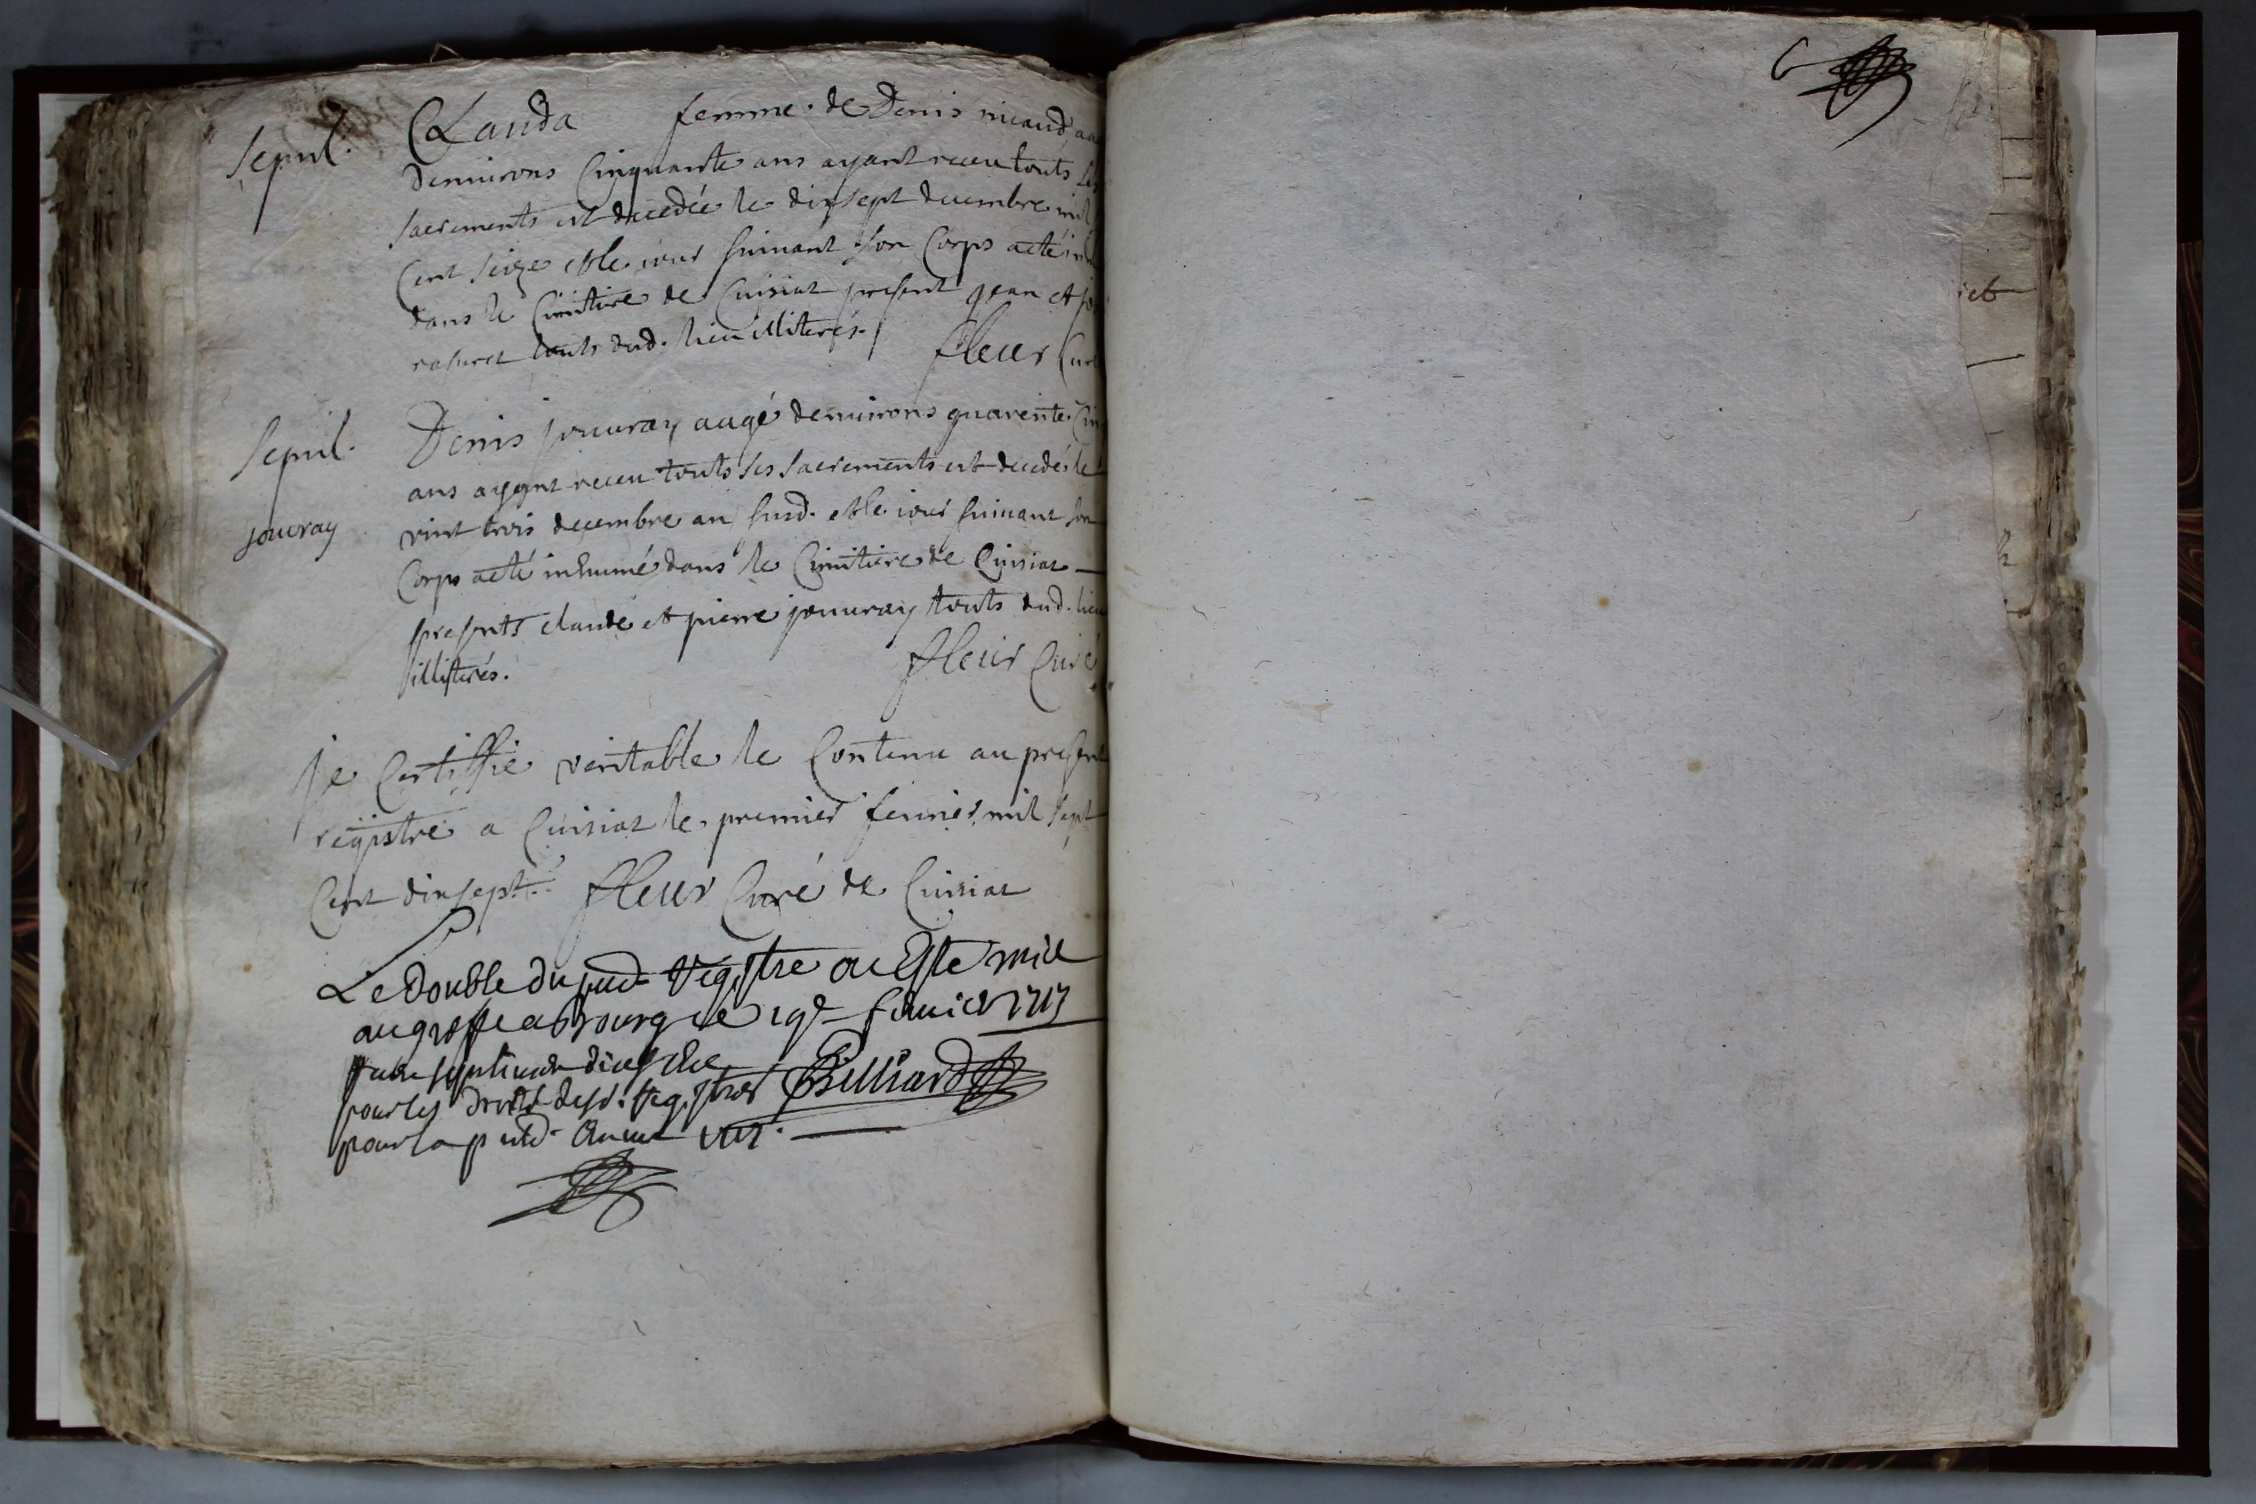 sepul. Clauda femme de Denis nicaud
denuirons Cinquante ans ayant receu touts les
sacrements est decedée le dixsept decembre mil
Cent seize et le iour suiuant son Corps a eté
dans le Cimitiere de Cuisiat present jean et
touts dud. lieu illiterés. fleur Curé
sepul. Denis jouuray aagé denuirons quarente Cin
ans ayant receu touts ses sacrements est decedé le
jouvray vint trois decembre an susd. et le iour suiuant son
Corps a eté inhumé dans le Cimitiere de Cuisiat
presents claude et pierre jouuray touts dud. lieu
illiterés. fleur Curé
je Certiffie veritable le Contenu au present
regïstre a Cuisiat le premier feurier mil sept
Cent dixsept. fleur Curé de Cuisiat
Le double du Registre a Esté mis
au greffe a bourg le 19e feurier 1717
pour les droits desd. Registres Billiard
pour la